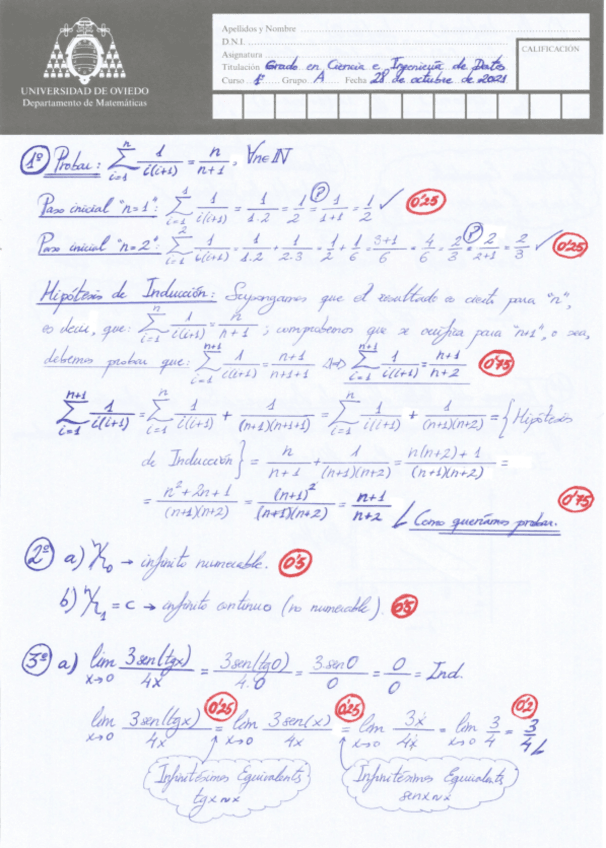 UNIVERSIDAD DE OVIEDO
Departamento de Matemáticas
Apellidos y Nombre
D.N.I.
Asignatura
Titulación Grado en Ciencia e Ingeniería de Datos
Curso 1º Grupo A Fecha 28 de octubre de 2021
CALIFICACIÓN
1º Probar: ∑_{i=1}^{n} 1/(i(i+1)) = n/(n+1), ∀n∈ℕ
Paso inicial "n=1": ∑_{i=1}^{1} 1/(i(i+1)) = 1/(1·2) = 1/2 =(?) 1/(1+1) = 1/2 ✓ 0'25
Paso inicial "n=2": ∑_{i=1}^{2} 1/(i(i+1)) = 1/(1·2) + 1/(2·3) = 1/2 + 1/6 = (3+1)/6 = 4/6 = 2/3 =(?) 2/(2+1) = 2/3 ✓ 0'25
Hipótesis de Inducción: Supongamos que el resultado es cierto para "n",
es decir, que: ∑_{i=1}^{n} 1/(i(i+1)) = n/(n+1); comprobemos que se verifica para "n+1", o sea,
debemos probar que: ∑_{i=1}^{n+1} 1/(i(i+1)) = (n+1)/(n+1+1) ⟺ ∑_{i=1}^{n+1} 1/(i(i+1)) = (n+1)/(n+2) 0'75
∑_{i=1}^{n+1} 1/(i(i+1)) = ∑_{i=1}^{n} 1/(i(i+1)) + 1/((n+1)(n+1+1)) = ∑_{i=1}^{n} 1/(i(i+1)) + 1/((n+1)(n+2)) = {Hipótesis
de Inducción} = n/(n+1) + 1/((n+1)(n+2)) = (n(n+2)+1)/((n+1)(n+2)) =
= (n²+2n+1)/((n+1)(n+2)) = (n+1)²/((n+1)(n+2)) = (n+1)/(n+2) Como queríamos probar. 0'75
2º a) ℵ₀ → infinito numerable. 0'5
b) ℵ₁ = c → infinito continuo (no numerable). 0'5
3º a) lim_{x→0} 3sen(tgx)/4x = 3sen(tg0)/4·0 = 3sen0/0 = 0/0 = Ind.
lim_{x→0} 3sen(tgx)/4x =(0'25) lim_{x→0} 3sen(x)/4x =(0'25) lim_{x→0} 3x/4x = lim_{x→0} 3/4 = 3/4 0'2
Infinitésimos Equivalents tgx≈x
Infinitésimos Equivalents senx≈x